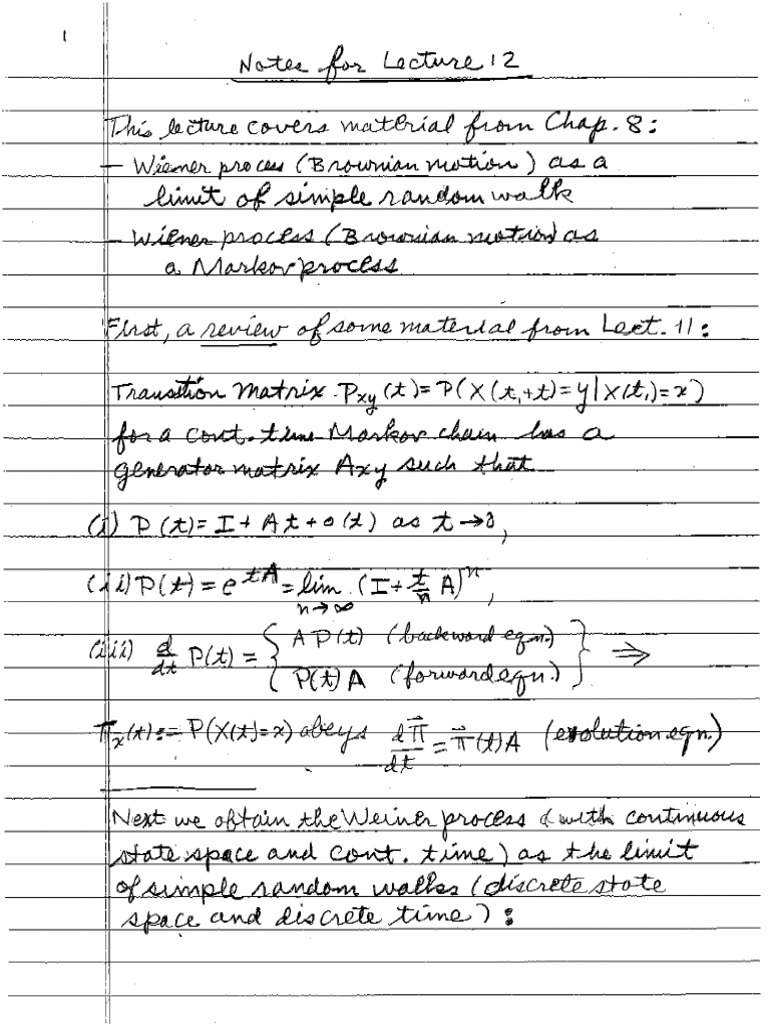 1
Notes for Lecture 12
This lecture covers material from Chap. 8:
– Wiener process (Brownian motion) as a
limit of simple random walk
– Wiener process (Brownian motion) as
a Markov process
First, a review of some material from Lect. 11:
Transition Matrix P_xy(t) = P(X(t₁+t)=y|X(t₁)=x)
for a cont. time Markov chain has a
generator matrix A_xy such that
(i) P(t) = I + At + o(t) as t → 0,
(ii) P(t) = e^{tA} = lim_{n→∞} (I + t/n A)^n,
(iii) d/dt P(t) = { AP(t) (backward eqn.)
P(t)A (forward eqn.) } ⇒
π_x(t) := P(X(t)=x) obeys dπ⃗/dt = π⃗(t)A (evolution eqn.)
Next we obtain the Weiner process (with continuous
state space and cont. time) as the limit
of simple random walks (discrete state
space and discrete time):